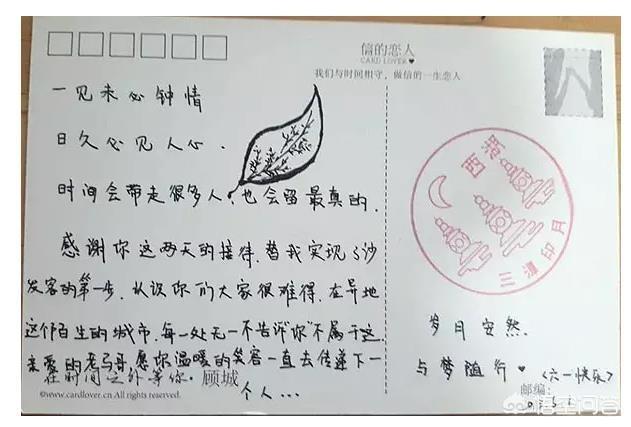 信的恋人
CARD LOVER♥
我们与时间相守，做信的一生恋人
一见未必钟情
日久必见人心.
时间会带走很多人，也会留最真的.
感谢你这两天的接待，替我实现了沙
发客的第一步.认识你们大家很难得，在异地
这个陌生的城市，每一处无一不告诉“你”不属于这.
亲爱的老马哥愿你温暖的笑容一直去传递下一
个人...
在时间之外等你·顾城
©www.cardlover.cn All rights reserved.
西湖
三潭印月
岁月安然.
与梦随行♥ <六一快乐>
邮编:
悟空问答